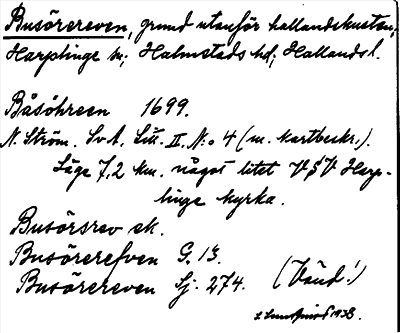 Busörereven, grund utanför hallandskusten,
Harplinge sn; Halmstads hd; Hallands l.
Båsöhreen 1699.
N. Ström. SvA. Litt. II. No 4 (m. kartbeskr.).
Läge 7,2 km. något litet VSV Harp-
linge kyrka.
Busörsrev ek.
Busörerefven G. 13.
Busörereven Sj. 274. (Vänd!)
1938.